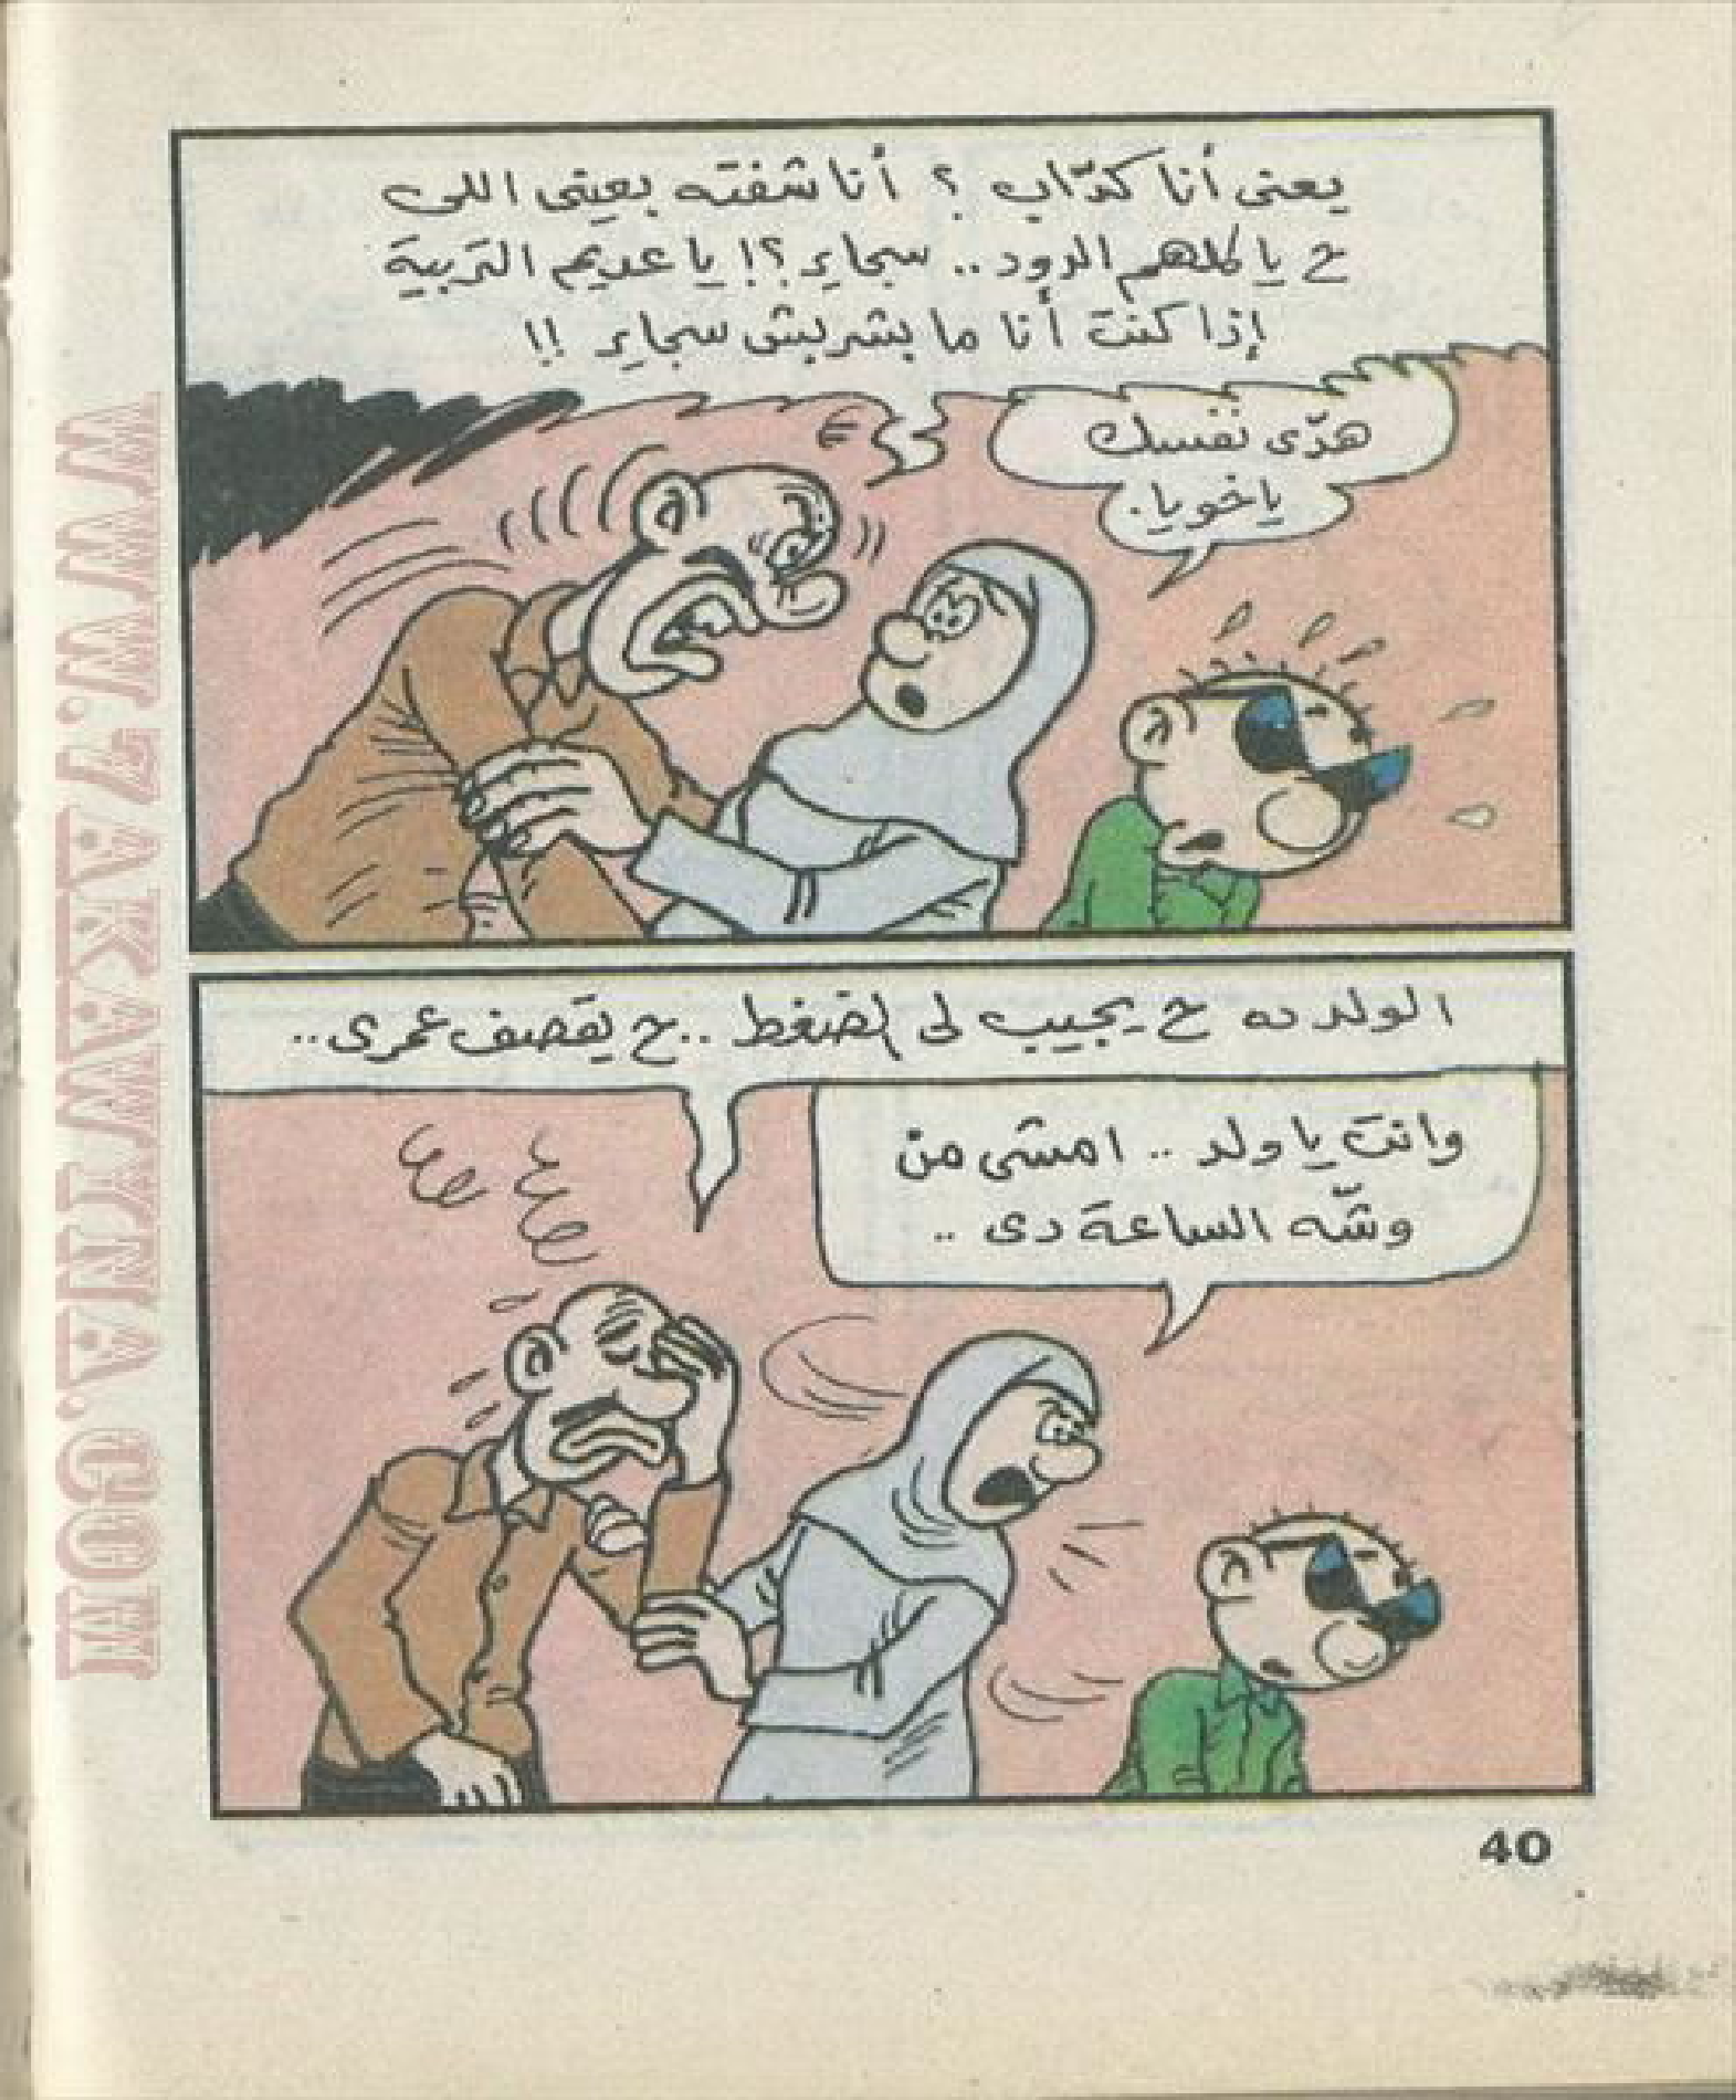 يعنى أنا كدّاب ؟ أنا شفته بعينى اللى
ح ياكلهم الدود .. سجاير ؟! يا عديم التربية
إذا كنت أنا ما بشربش سجاير !!
هدّى نفسك
ياخويا.
الولد ده ح يجيب لى الضغط .. ح يقصف عمرى ..
وانت يا ولد .. امشى من
وشّه الساعة دى ..
40
WWW.7AKAWINA.COM